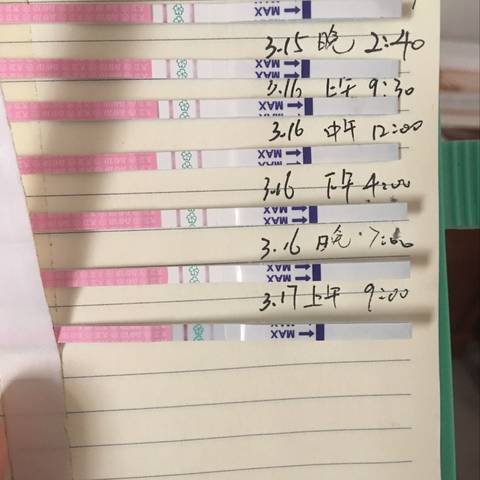 MAX
3.15 晚 2:40
MAX
3.16 上午 9:30
MAX
3.16 中午 12:00
MAX
3.16 下午 4:00
MAX
3.16 晚 7:00
MAX
3.17 上午 9:00
MAX